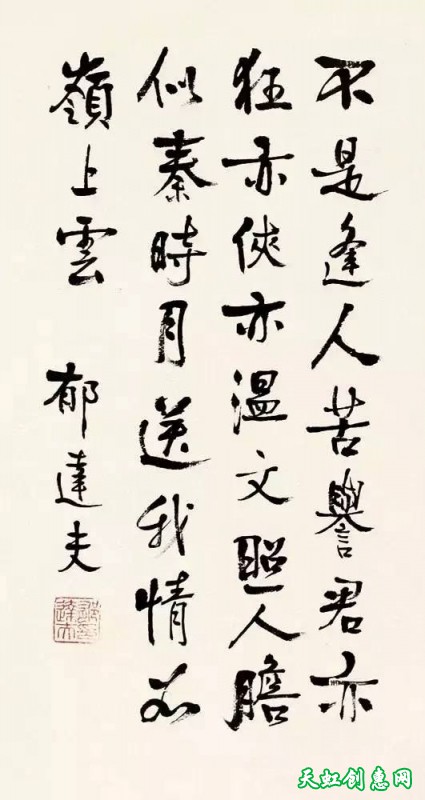 不是逢人苦譽君亦
狂亦俠亦溫文照人膽
似秦時月送我情如
嶺上雲
郁達夫
天虹創惠网